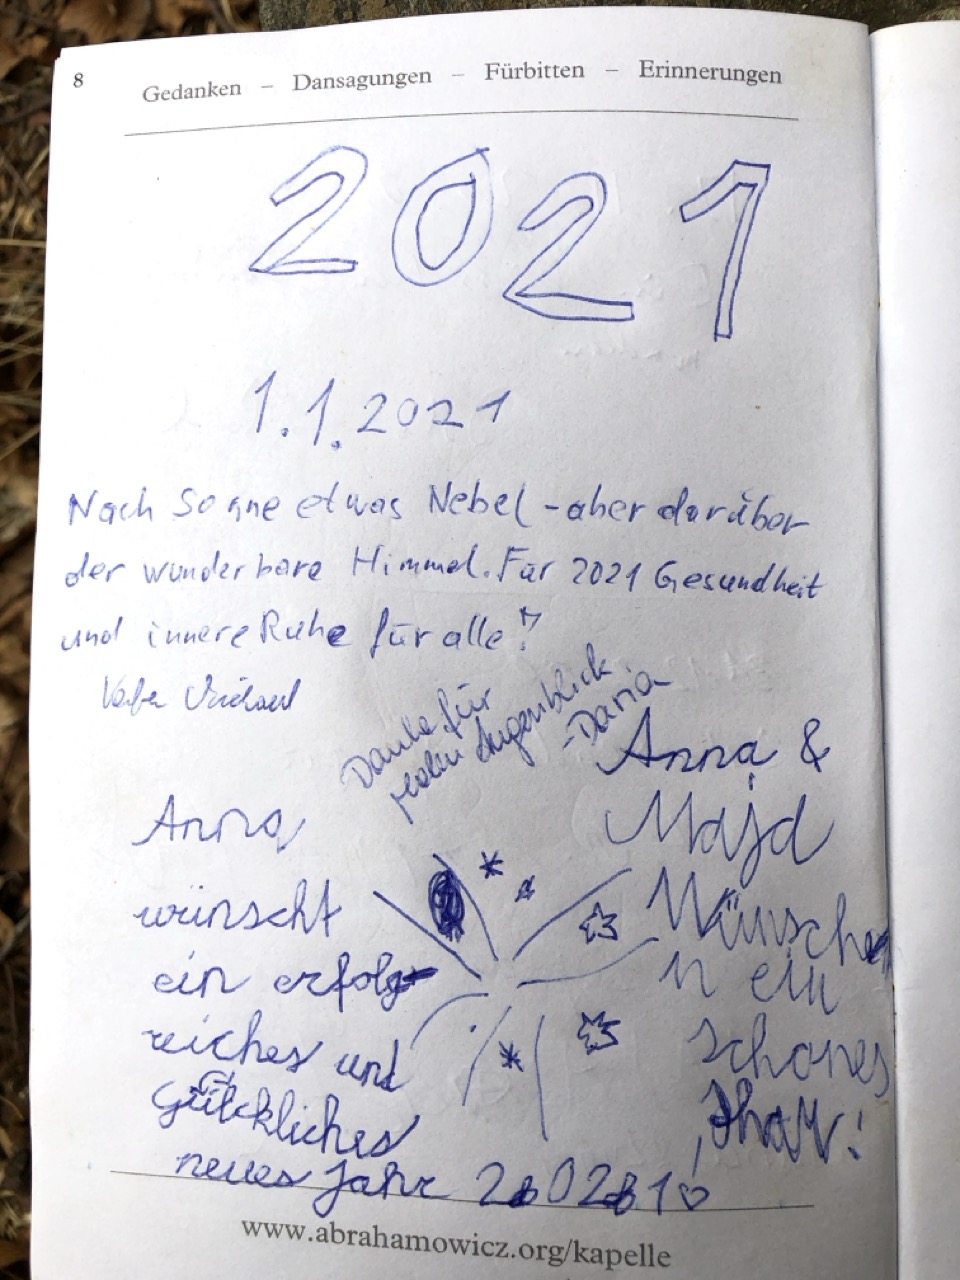 8
Gedanken – Dansagungen – Fürbitten – Erinnerungen
2021
1.1.2021
Nach Sonne etwas Nebel - aber darüber
der wunderbare Himmel. Für 2021 Gesundheit
und innere Ruhe für alle!
Michael
Danke für
jeden Augenblick
- Daria
Anna
wünscht
ein erfolg
reiches und
glückliches
neues Jahr 2021
Anna &
Majd
Wünsche
n ein
schönes
www.abrahamowicz.org/kapelle